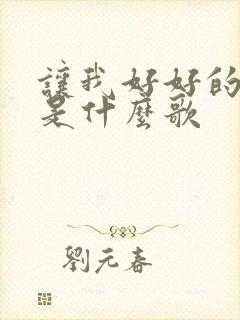 讓我好好的
是什麼歌
劉元春